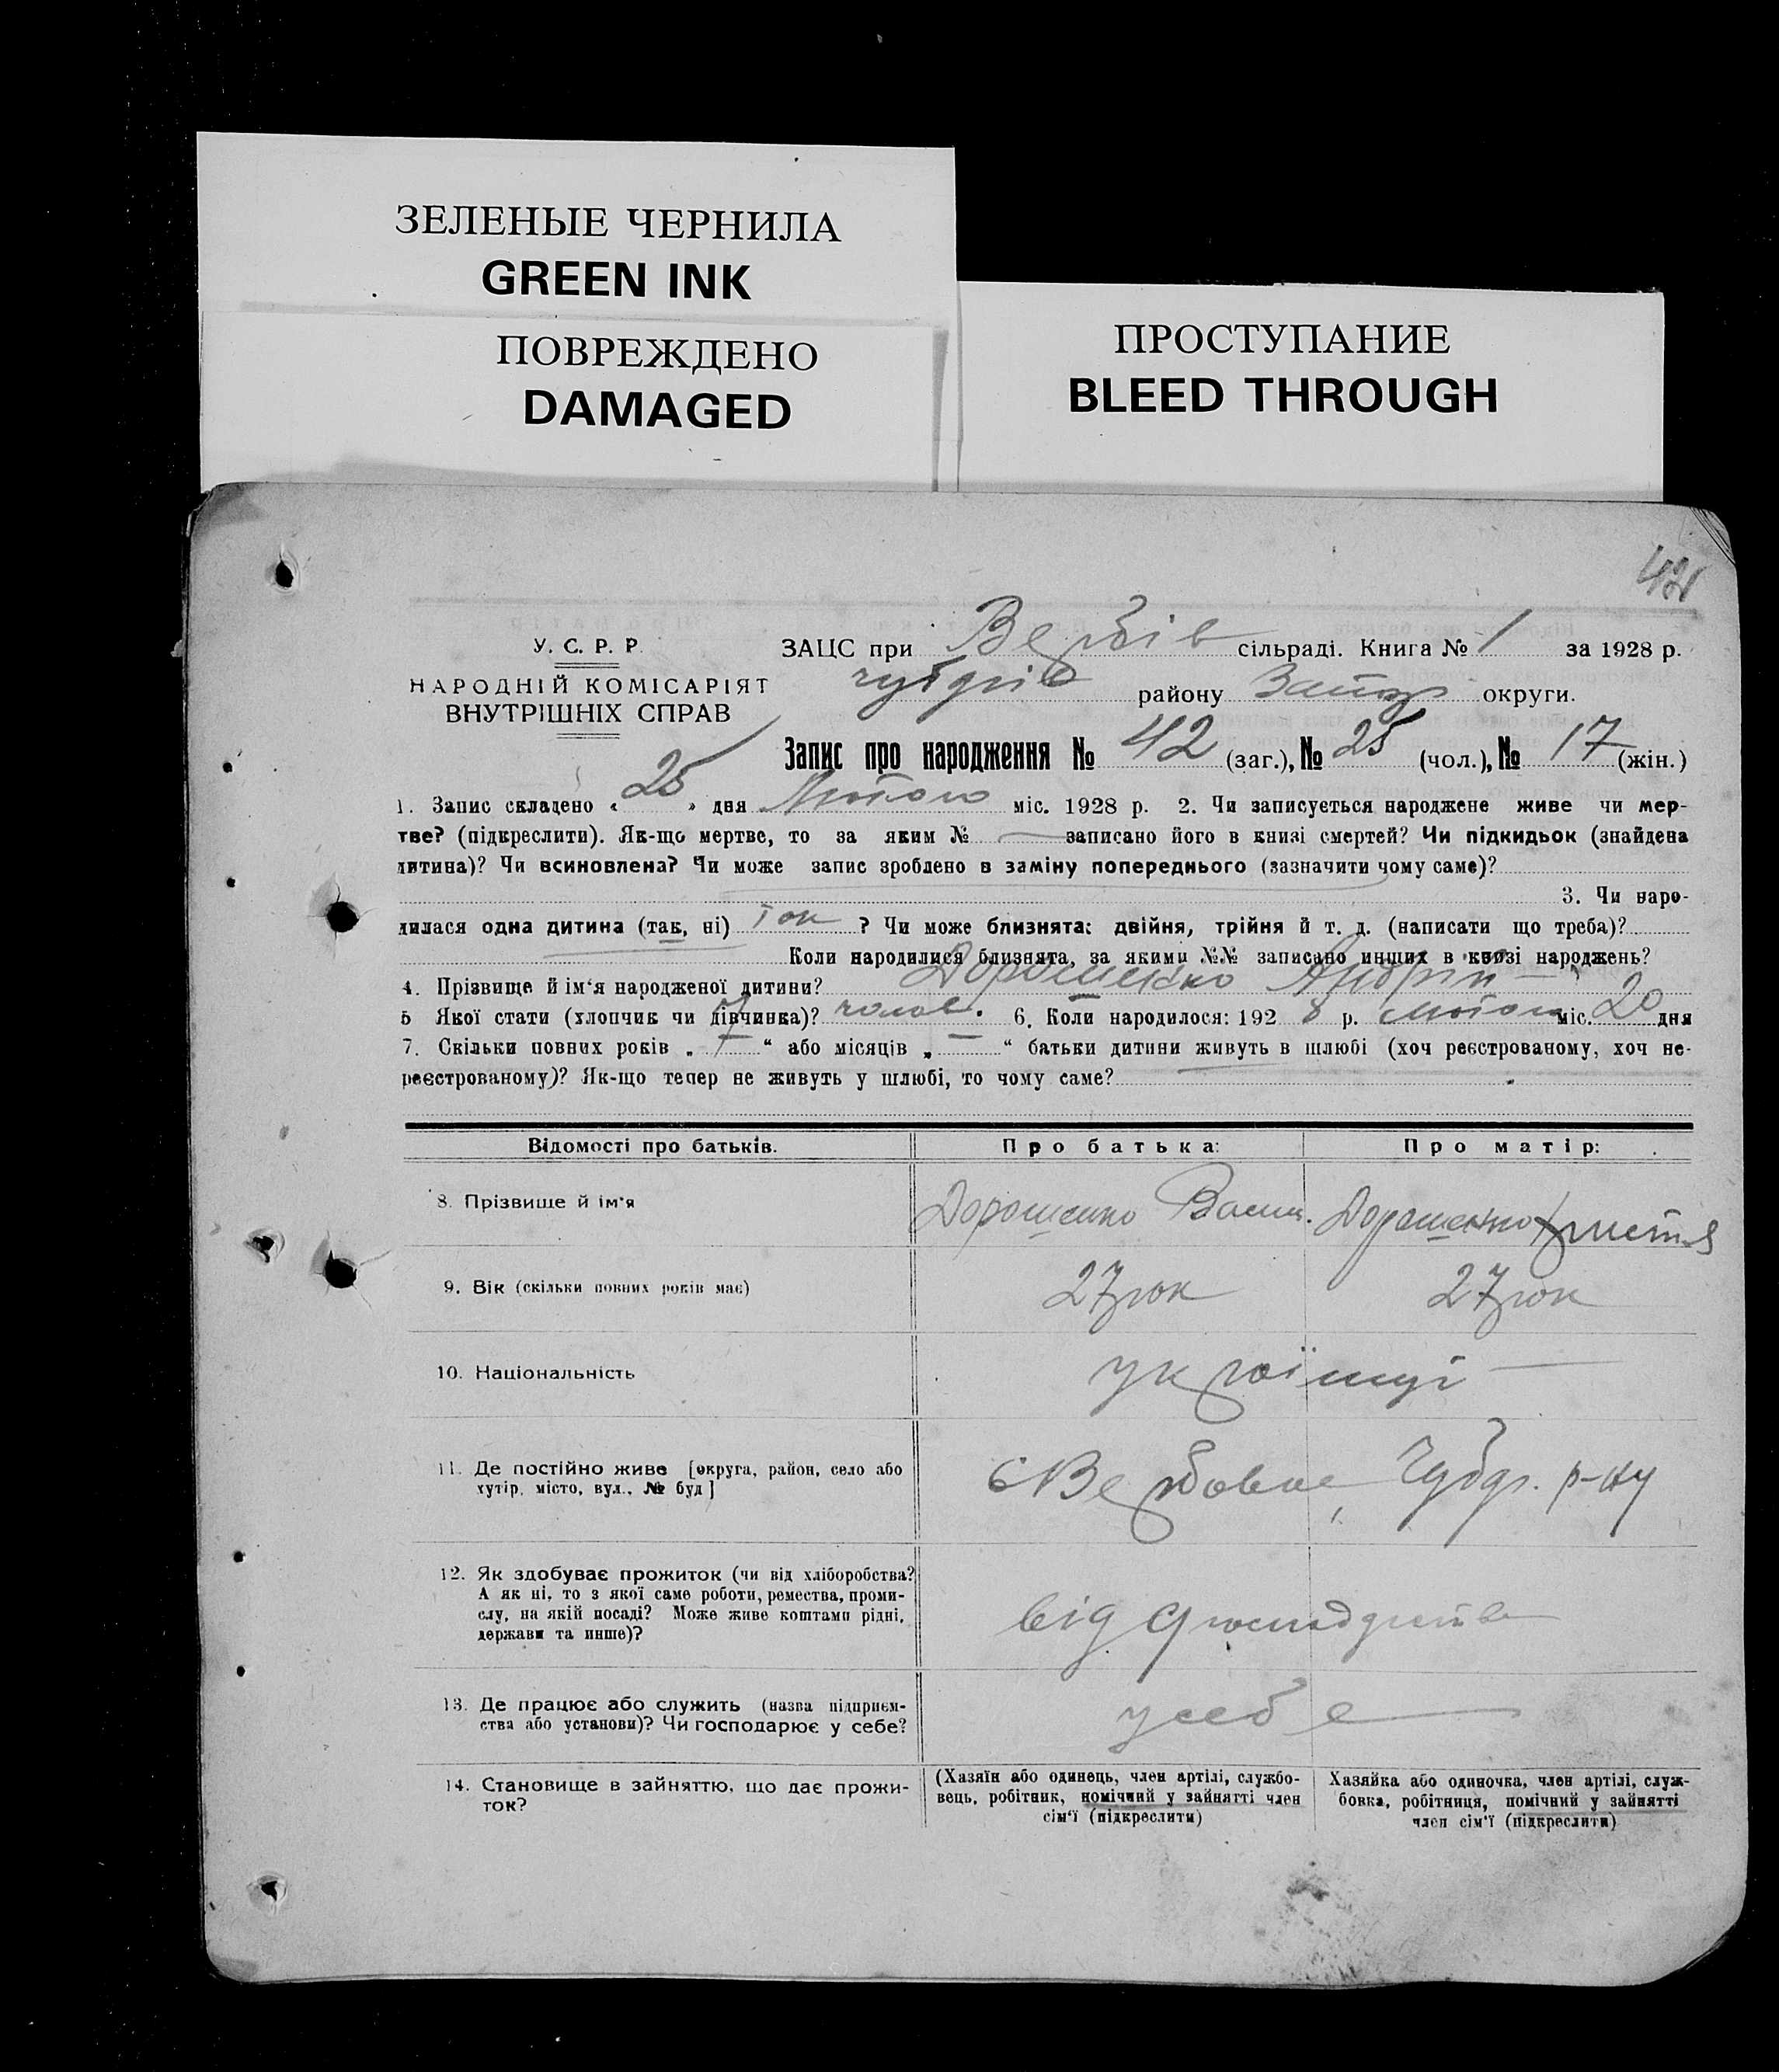 ЗЕЛЕНЫЕ ЧЕРНИЛА
GREEN INK
ПОВРЕЖДЕНО
DAMAGED
ПРОСТУПАНИЕ
BLEED THROUGH
42
У. С. Р. Р.
НАРОДНІЙ КОМІСАРІЯТ
ВНУТРІШНІХ СПРАВ
ЗАЦС при Вербів сільраді. Книга № 1 за 1928 р.
чубарів району Запор округи.
Запис про народження № 42 (заг.), № 25 (чол.), № 17 (жін.)
1. Запис складено « 25 » дня Лютого міс. 1928 р. 2. Чи записується народжене живе чи мер-
тве? (підкреслити). Як-що мертве, то за яким № — записано його в книзі смертей? Чи підкидьок (знайдена
дитина)? Чи всиновлена? Чи може запис зроблено в заміну попереднього (зазначити чому саме)?
3. Чи наро-
дилася одна дитина (так, ні) так ? Чи може близнята: двійня, трійня й т. д. (написати що треба)?
Коли народилися близнята, за якими №№ записано инших в книзі народжень?
4. Прізвище й ім'я народженої дитини? Дорошенко Андрій
5 Якої стати (хлопчик чи дівчинка)? чолов. 6. Коли народилося: 192 8 р. Лютого міс. 20 дня
7. Скільки повних років „ 7 “ або місяців „ — “ батьки дитини живуть в шлюбі (хоч реєстрованому, хоч не-
реєстрованому)? Як-що тепер не живуть у шлюбі, то чому саме?
Відомості про батьків. Про батька: Про матір:
8. Прізвище й ім'я Дорошенко Васил. Дорошенко Христя
9. Вік (скільки повних років має) 27 рок 27 рок
10. Національність українці
11. Де постійно живе [округа, район, село або
хутір, місто, вул., № буд]
с Вербовое, Чубар. р-ну
12. Як здобуває прожиток (чи від хліборобства?
А як ні, то з якої саме роботи, ремества, проми-
слу, на якій посаді? Може живе коштами рідні,
держави та инше)?
від
13. Де працює або служить (назва підприєм-
ства або установи)? Чи господарює у себе?
у себе
14. Становище в зайняттю, що дає прожи-
ток?
(Хазяїн або одинець, член артілі, службо-
вець, робітник, помічний у зайнятті член
сім'ї (підкреслити)
Хазяйка або одиночка, член артілі, служ-
бовка, робітниця, помічний у зайнятті
член сім'ї (підкреслити)